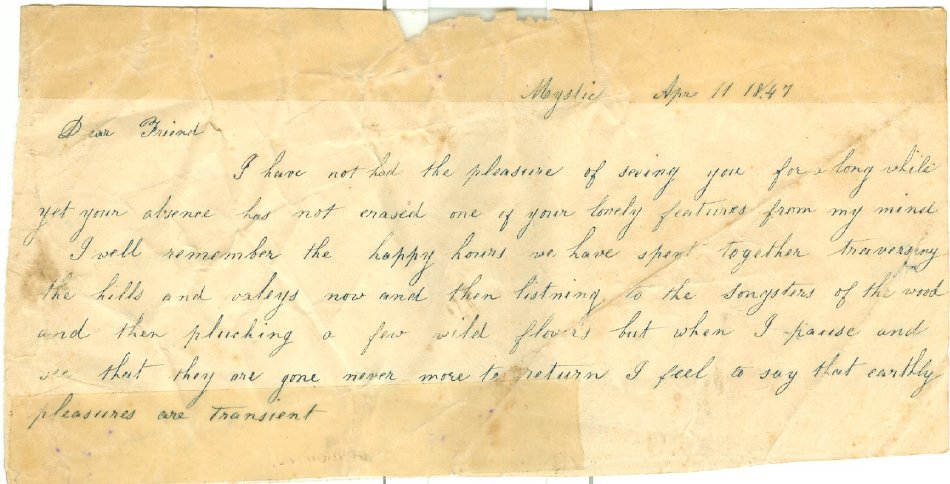 Mystic Apr 11 1847
Dear Friend
I have not had the pleasure of seeing you for a long while
yet your absence has not erased one of your lovely features from my mind
I well remember the happy hours we have spent together traversing
the hills and valeys now and then listning to the songsters of the wood
and then plucking a few wild flowers but when I pause and
see that they are gone never more to return I feel to say that earthly
pleasures are transient